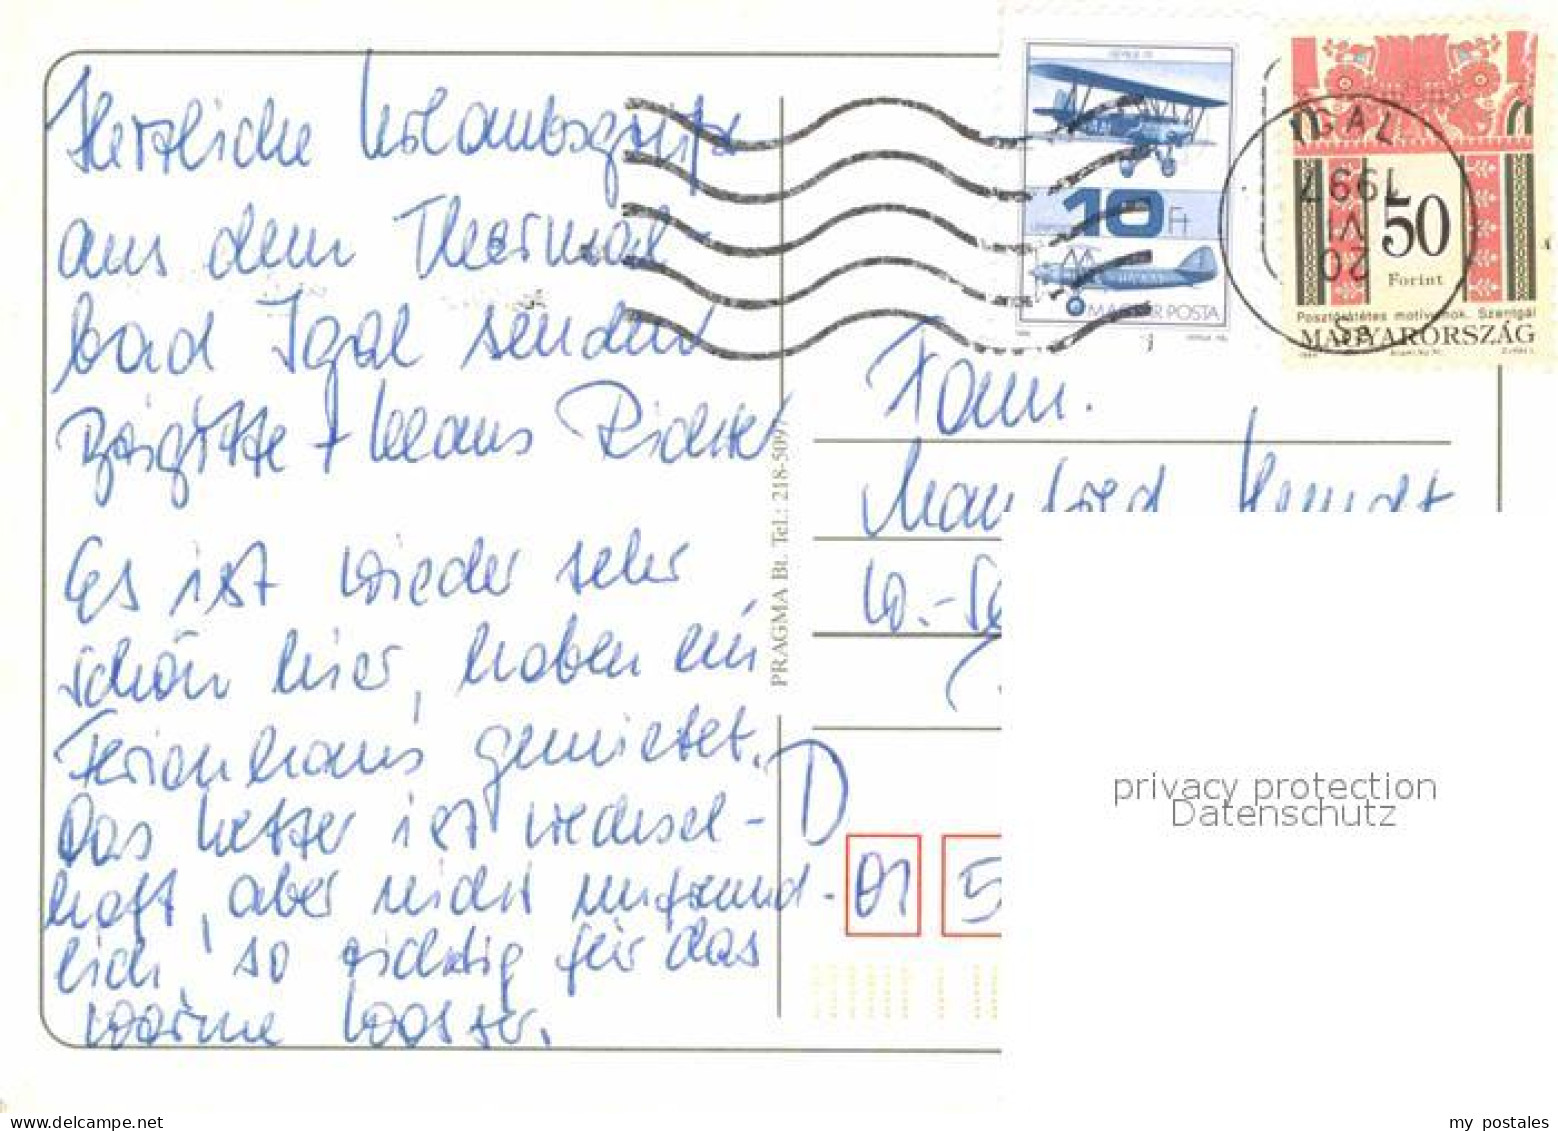 Herzliche Urlaubsgrüße
aus dem Thermal-
bad Igal senden
Brigitte + Klaus Richter
Es ist wieder sehr
schön hier, haben ein
Ferienhaus gemietet.
Das Wetter ist wechsel-
haft, aber nicht unfreund-
lich, so richtig für das
warme Wasser.
PRAGMA Bt. Tel.: 218-5097
10 Ft
MAGYAR POSTA
IGAL
1997
VI
20
50
Forint
Postáskötés motívumok. Szentgál
MAGYARORSZÁG
Fam.
Manfred
W.-
D
01 5
privacy protection
Datenschutz
my postales